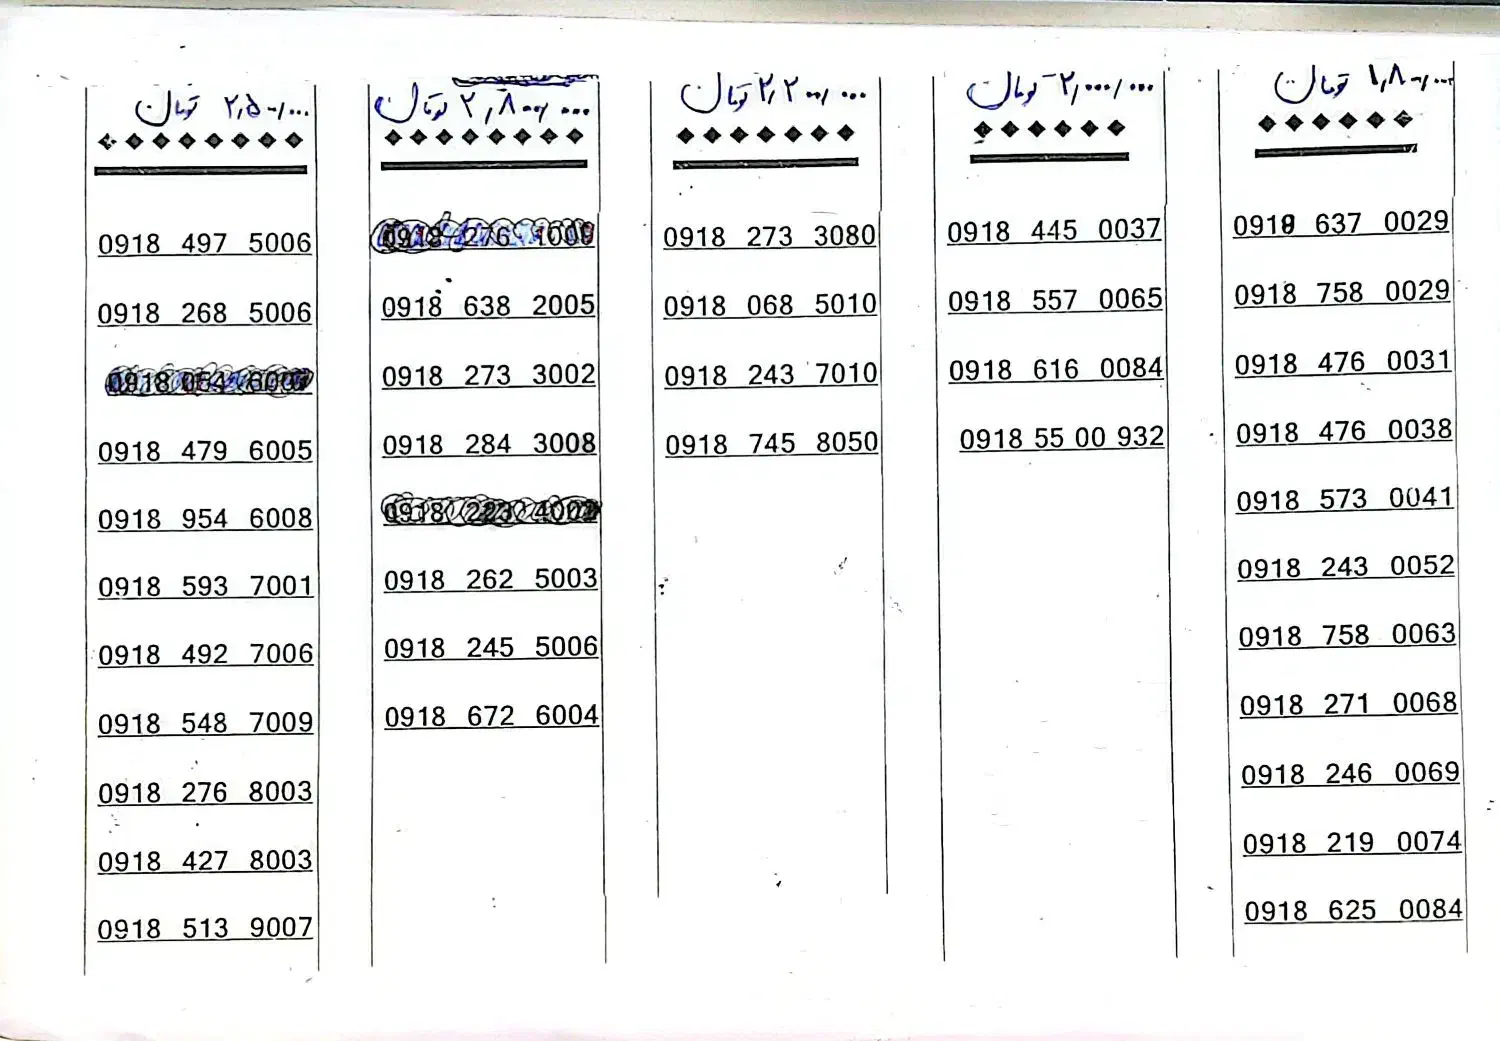 ۲,۵۰۰/۰۰۰ تومان
0918 497 5006
0918 268 5006
0918 479 6005
0918 954 6008
0918 593 7001
0918 492 7006
0918 548 7009
0918 276 8003
0918 427 8003
0918 513 9007
۲,۸۰۰/۰۰۰ تومان
0918 276 1009
0918 638 2005
0918 273 3002
0918 284 3008
0918 223 4002
0918 262 5003
0918 245 5006
0918 672 6004
۲,۲۰۰/۰۰۰ تومان
0918 273 3080
0918 068 5010
0918 243 7010
0918 745 8050
۲,۰۰۰/۰۰۰ تومان
0918 445 0037
0918 557 0065
0918 616 0084
0918 55 00 932
۱,۸۰۰/۰۰۰ تومان
0918 637 0029
0918 758 0029
0918 476 0031
0918 476 0038
0918 573 0041
0918 243 0052
0918 758 0063
0918 271 0068
0918 246 0069
0918 219 0074
0918 625 0084